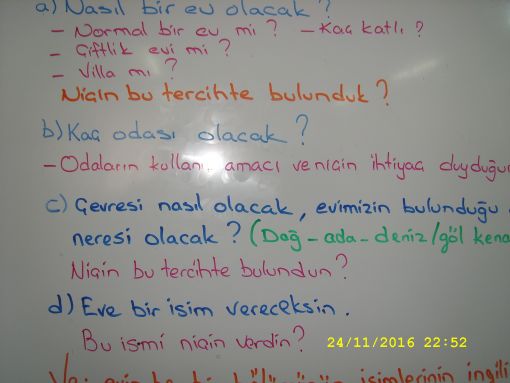 a) Nasıl bir ev olacak?
- Normal bir ev mi? - Kaç katlı?
- Çiftlik evi mi?
- Villa mı?
Niçin bu tercihte bulunduk?
b) Kaç odası olacak?
- Odaların kullanı- amacı ve niçin ihtiyaç duyduğu
c) Çevresi nasıl olacak, evimizin bulunduğu
neresi olacak? (Dağ - ada - deniz/göl kena
Niçin bu tercihte bulundun?
d) Eve bir isim vereceksin.
Bu ismi niçin verdin?
24/11/2016 22:52
isimlerinin ingili